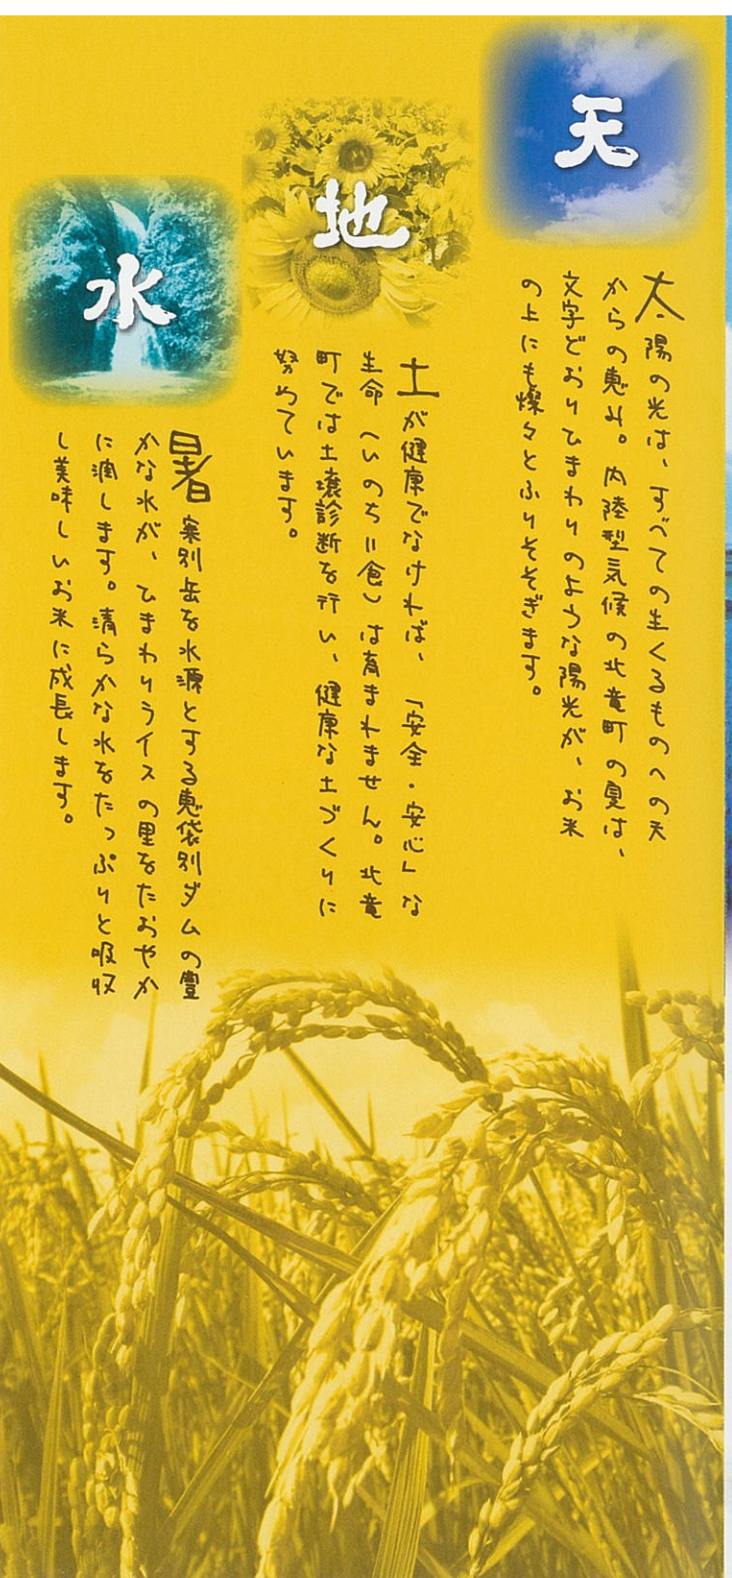 天
太陽の光は、すべての生くるものへの天
からの恵み。内陸型気候の北竜町の夏は、
文字どおりひまわりのような陽光が、お米
の上にも燦々とふりそそぎます。
地
土が健康でなければ、「安全・安心」な
生命（いのち＝食）は育まれません。北竜
町では土壌診断を行い、健康な土づくりに
努めています。
水
暑寒別岳を水源とする恵袋別ダムの豊
かな水が、ひまわりライスの里をたおやか
に潤します。清らかな水をたっぷりと吸収
し美味しいお米に成長します。